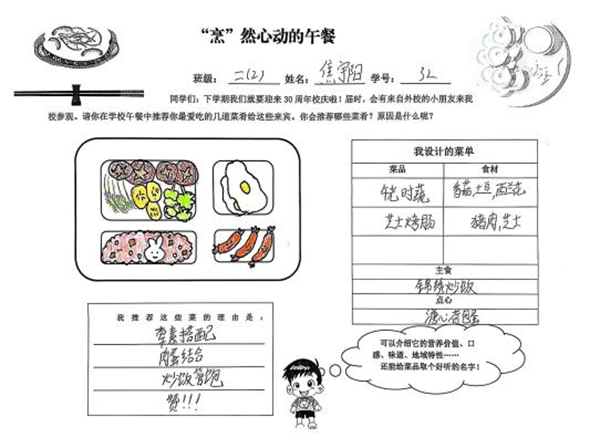 “烹”然心动的午餐
班级：二(2) 姓名：焦宇阳 学号：32
同学们：下学期我们就要迎来 30 周年校庆啦！届时，会有来自外校的小朋友来我
校参观。请你在学校午餐中推荐你最爱吃的几道菜肴给这些来宾。你会推荐哪些菜肴？原因是什么呢？
我设计的菜单
菜品 食材
时蔬 番茄,土豆,西兰花
芝士烤肠 猪肉,芝士
主食
锦绣炒饭
点心
溏心荷包蛋
我推荐这些菜的理由是：
荤素搭配
肉蛋结合
炒饭管饱
赞!!!
可以介绍它的营养价值、口
感、味道、地域特性……
还能给菜品取个好听的名字！